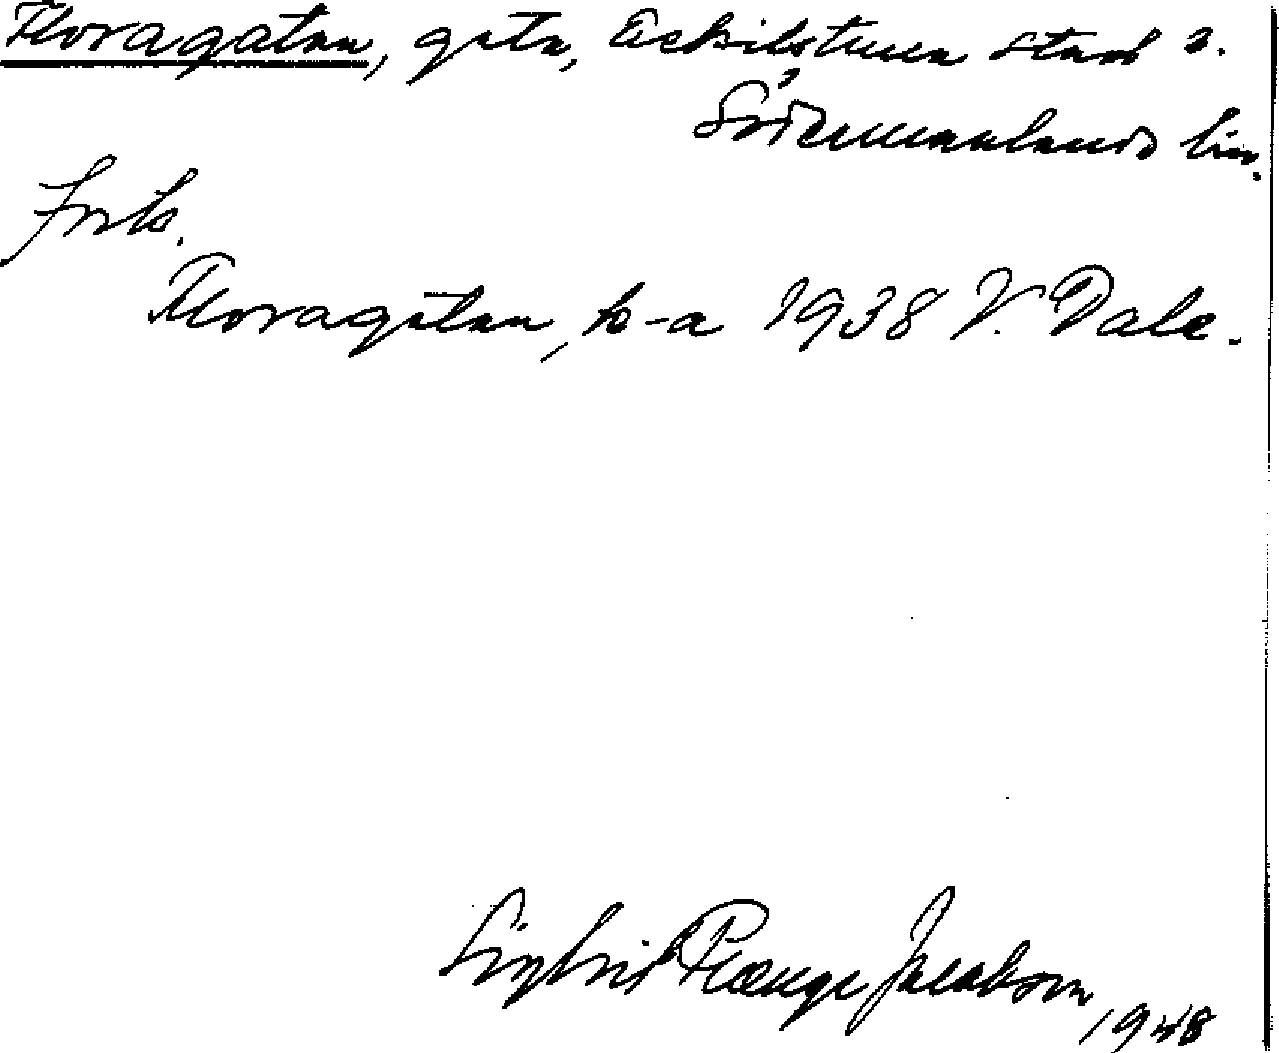 Floragatan, gata, Eskilstuna stad 2.
Södermanlands län.
Forts.
Floragatan, k-a 1938 V. Dale.
Sigfrid Plange Jacobson, 1948